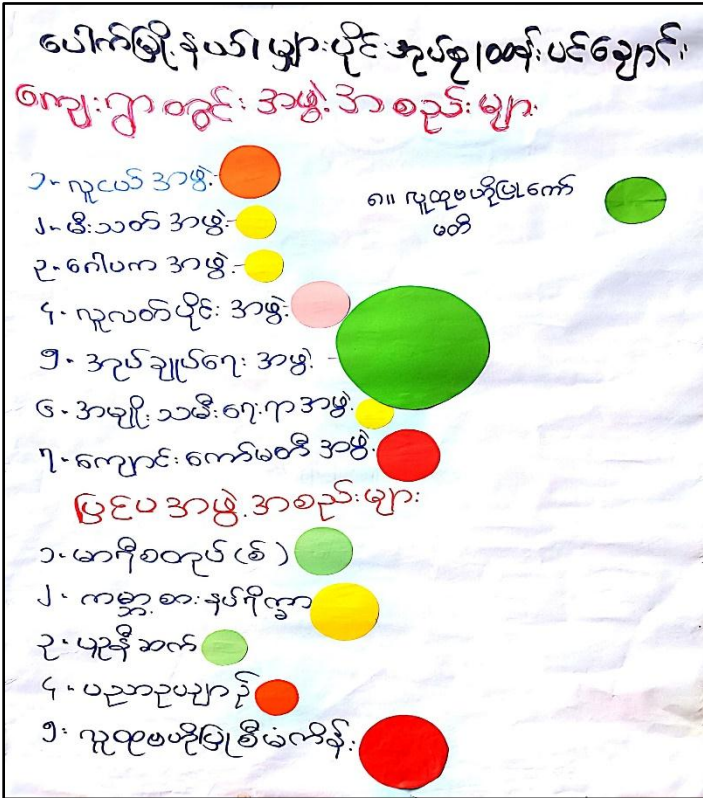 ပေါက်မြို့နယ်၊ မျှားပိုင်းအုပ်စု၊ ထန်းပင်ချောင်း
ကျေးရွာတွင်း အဖွဲ့အစည်းများ
၁- လူငယ် အဖွဲ့
၂- မီးသတ် အဖွဲ့
၃- ဂေါပက အဖွဲ့
၄- လူလတ်ပိုင်း အဖွဲ့
၅- အုပ်ချုပ်ရေး အဖွဲ့
၆- အမျိုးသမီးရေးရာအဖွဲ့
၇- ကျောင်းကော်မတီ အဖွဲ့
၈။ လူထုဗဟိုပြုကော်
မတီ
ပြင်ပအဖွဲ့အစည်းများ
၁- မာရီစတုပ် (စ်)
၂- ကမ္ဘာ့စားနပ်ရိက္ခာ
၃- ယူနီဆက်
၄- ပညာဥယျာဉ်
၅- လူထုဗဟိုပြုစီမံကိန်း